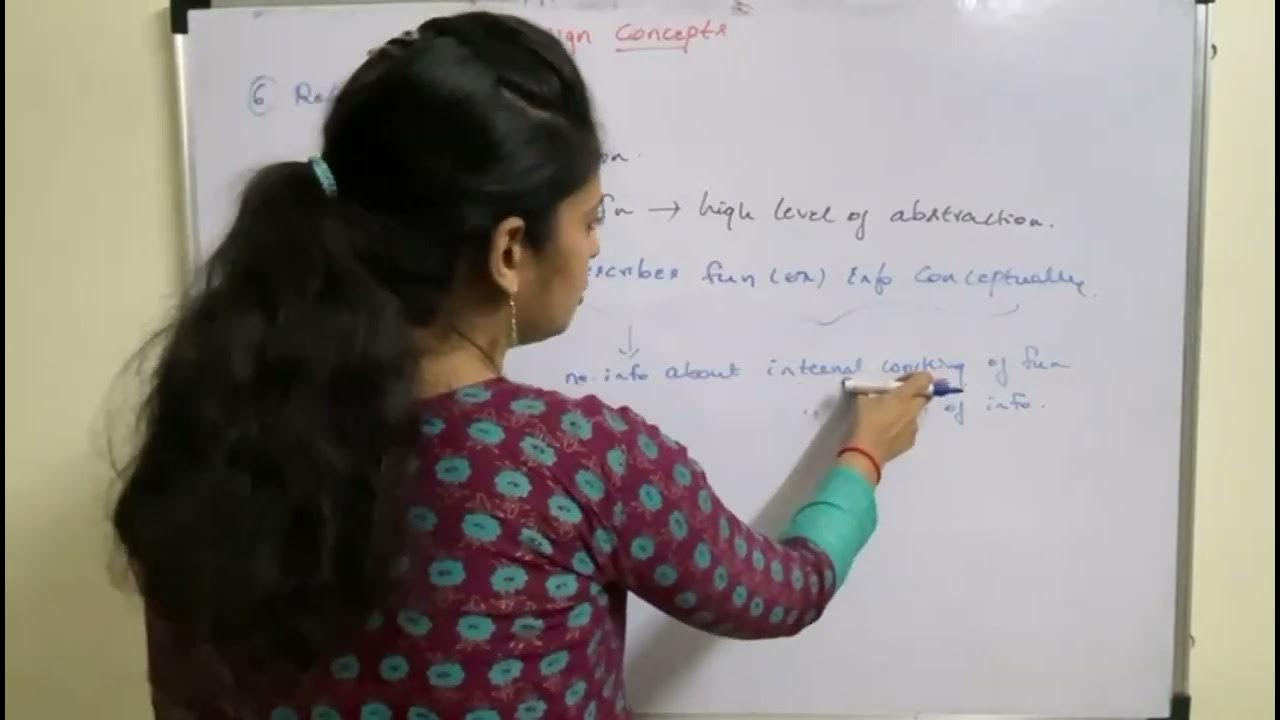 Concepts
6
fn → high level of abstraction.
fun (or) Info Conceptually.
no info about internal working of fun
of info.